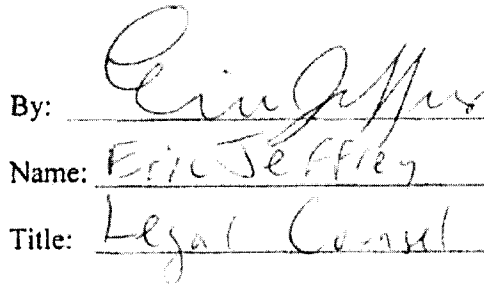 By: Eric Jeffrey
Name: Eric Jeffrey
Title: Legal Counsel